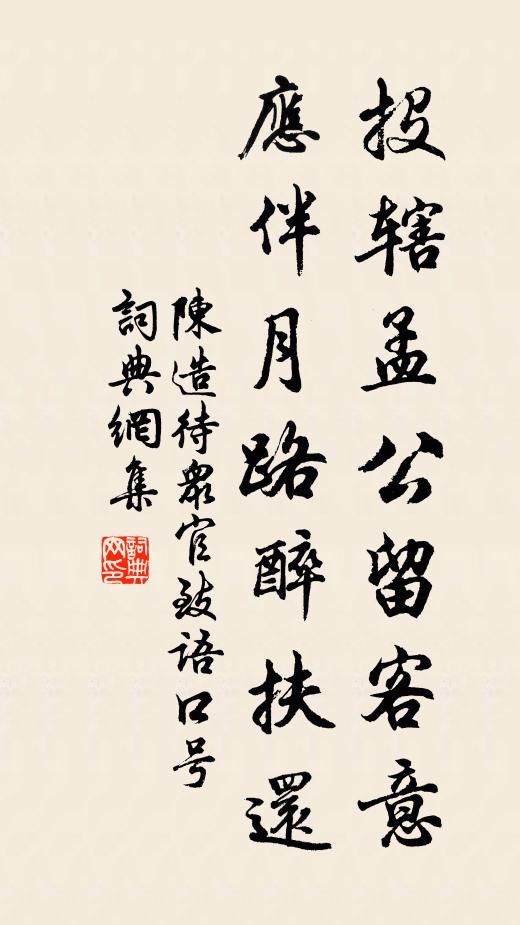 投辖孟公留客意
應伴月路醉扶還
陳造待衆官致語口号
詞典網集
詞典网印